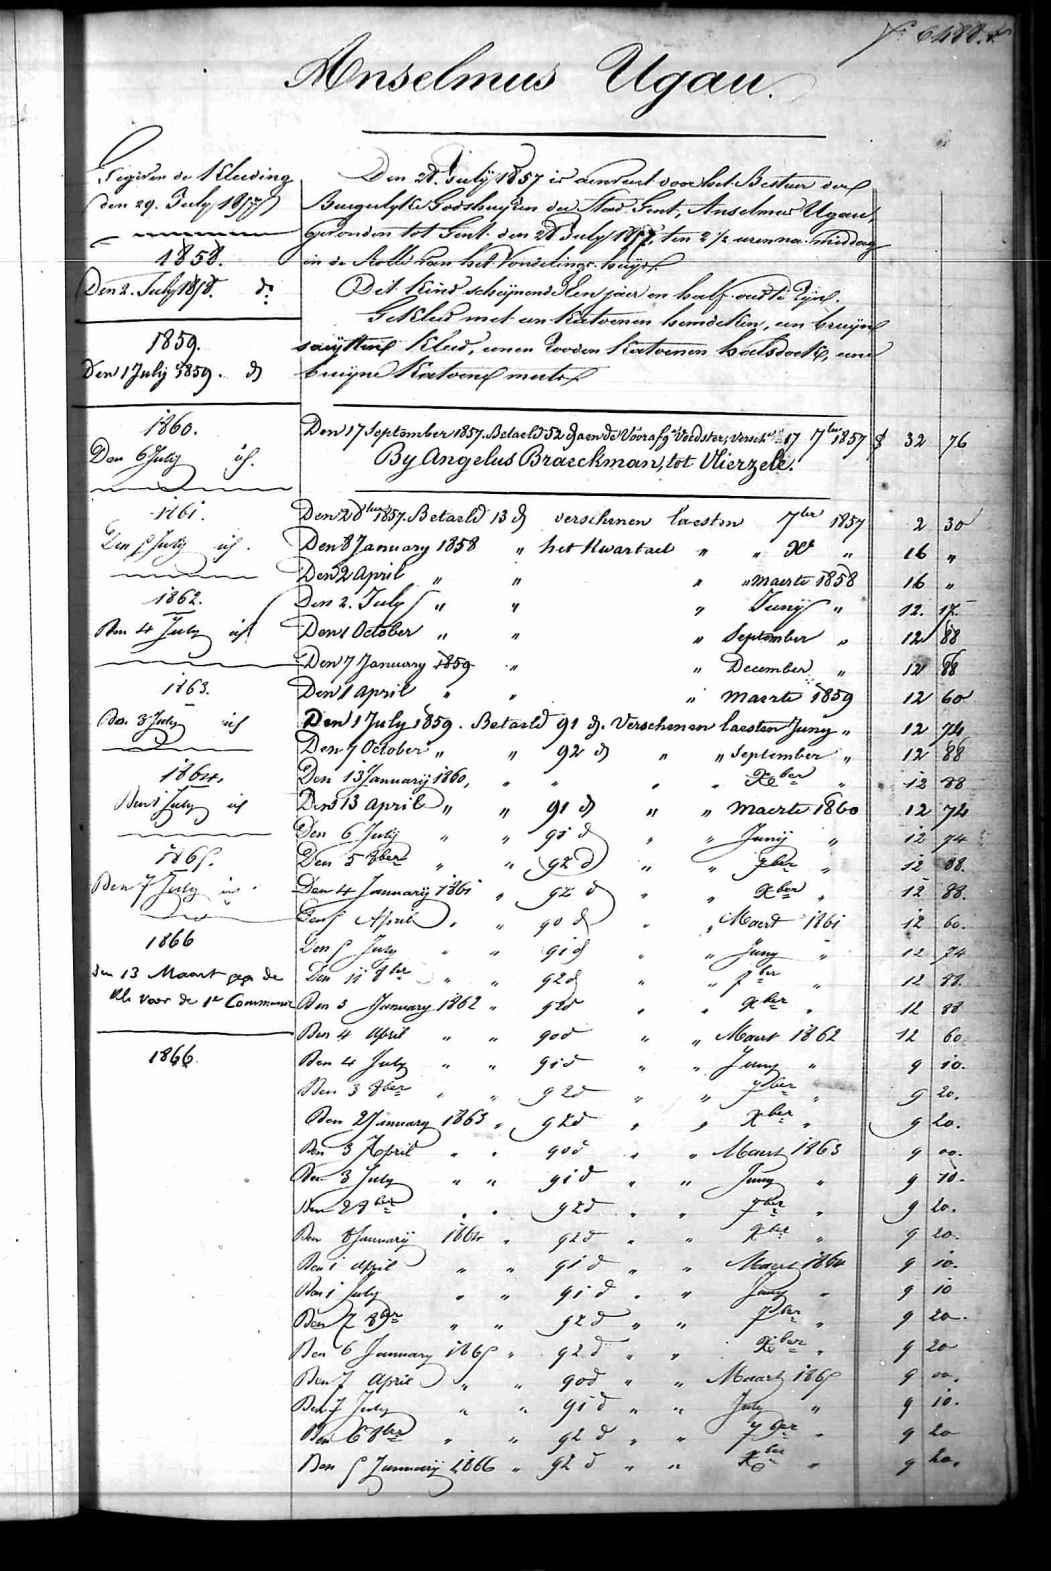 Anselmus Ugau.
Gegeven de Kleeding
den 29. July 1857
1858.
Den 2. July 1858. do
1859.
Den 1 July 1859. d
1860.
Den 6 July id.
1861.
Den 5 July id.
1862.
Den 4 July id
1863.
Den 3 July id
1864.
Den 1 July id
1865.
Den 7 July id.
1866
den 13 Maart
voor de 1e Communie
1866.
Den 28. July 1857 is aenveert door het Bestuer der
Burgerlyke Godshuyzen der Stad Gent, Anselmus Ugau,
gevonden tot Gent den 28 July 1857, ten 2 1/2 uren na middag
in de Rolle van het Vondelings-huys.
Dit Kind schijnende Een jaer en half oud te zijn.
Gekleed met een Katoenen hemdeken, een bruyn
Kleed, eenen rooden Katoenen halsdoek, eene
bruyne Katoene muts
Den 17 September 1857. Betaeld 52 d aen de Voorafge Voedster, versch. 17 7ber 1857 32 76
By Angelus Braeckman, tot Vlierzele.
Den 28ber 1857. Betaeld 13 d verschenen laesten 7ber 1857 2 30
Den 8 January 1858 " het Kwartael " " Xr " 16 "
Den 2 April " " " " maerte 1858 16 "
Den 2. July " " " Juny " 12. 17.
Den 1 October " " " September " 12 88
Den 7 January 1859 " " December " 12 88
Den 1 April " " " maerte 1859 12 60
Den 1 July 1859. Betaeld 91 d. Verschenen laesten Juny " 12 74
Den 7 October " " 92 d " " September " 12 88
Den 13 January 1860, " " " " Xber " 12 88
Den 13 April " " 91 d " " maerte 1860 12 74
Den 6 July " " 91 d " " Juny " 12 74
Den 5 8ber " " 92 d " " 7ber " 12 88.
Den 4 January 1861 " 92 d " " Xber " 12 88.
Den 5 April " " 90 d " " Maert 1861 12 60.
Den 5 July " " 91 d " " Juny " 12 74
Den 11 8ber " " 92 d " " 7ber " 12 88.
Den 3 January 1862 " 92 d " " Xber " 12 88
Den 4 April " " 90 d " " Maert 1862 12 60.
Den 4 July " " 91 d " " Juny " 9 10.
Den 3 8ber " " 92 d " " 7ber " 9 20.
Den 2 January 1863 " 92 d " " Xber " 9 20.
Den 3 April " " 90 d " " Maert 1863 9 00.
Den 3 July " " 91 d " " Juny " 9 10.
Den 2 8ber " " 92 d " " 7ber " 9 20.
Den 8 January 1864 " 92 d " " Xber " 9 20.
Den 1 April " " 91 d " " Maert 1864 9 10.
Den 1 July " " 91 d " " Juny " 9 10
Den 7 8ber " " 92 d " " 7ber " 9 20.
Den 6 January 1865 " 92 d " " Xber " 9 20
Den 7 April " " 90 d " " Maert 1865 9 00.
Den 7 July " " 91 d " " July " 9 10.
Den 6 8ber " " 92 d " " 7ber " 9 20
Den 5 January 1866 " 92 d " " Xber " 9 20.